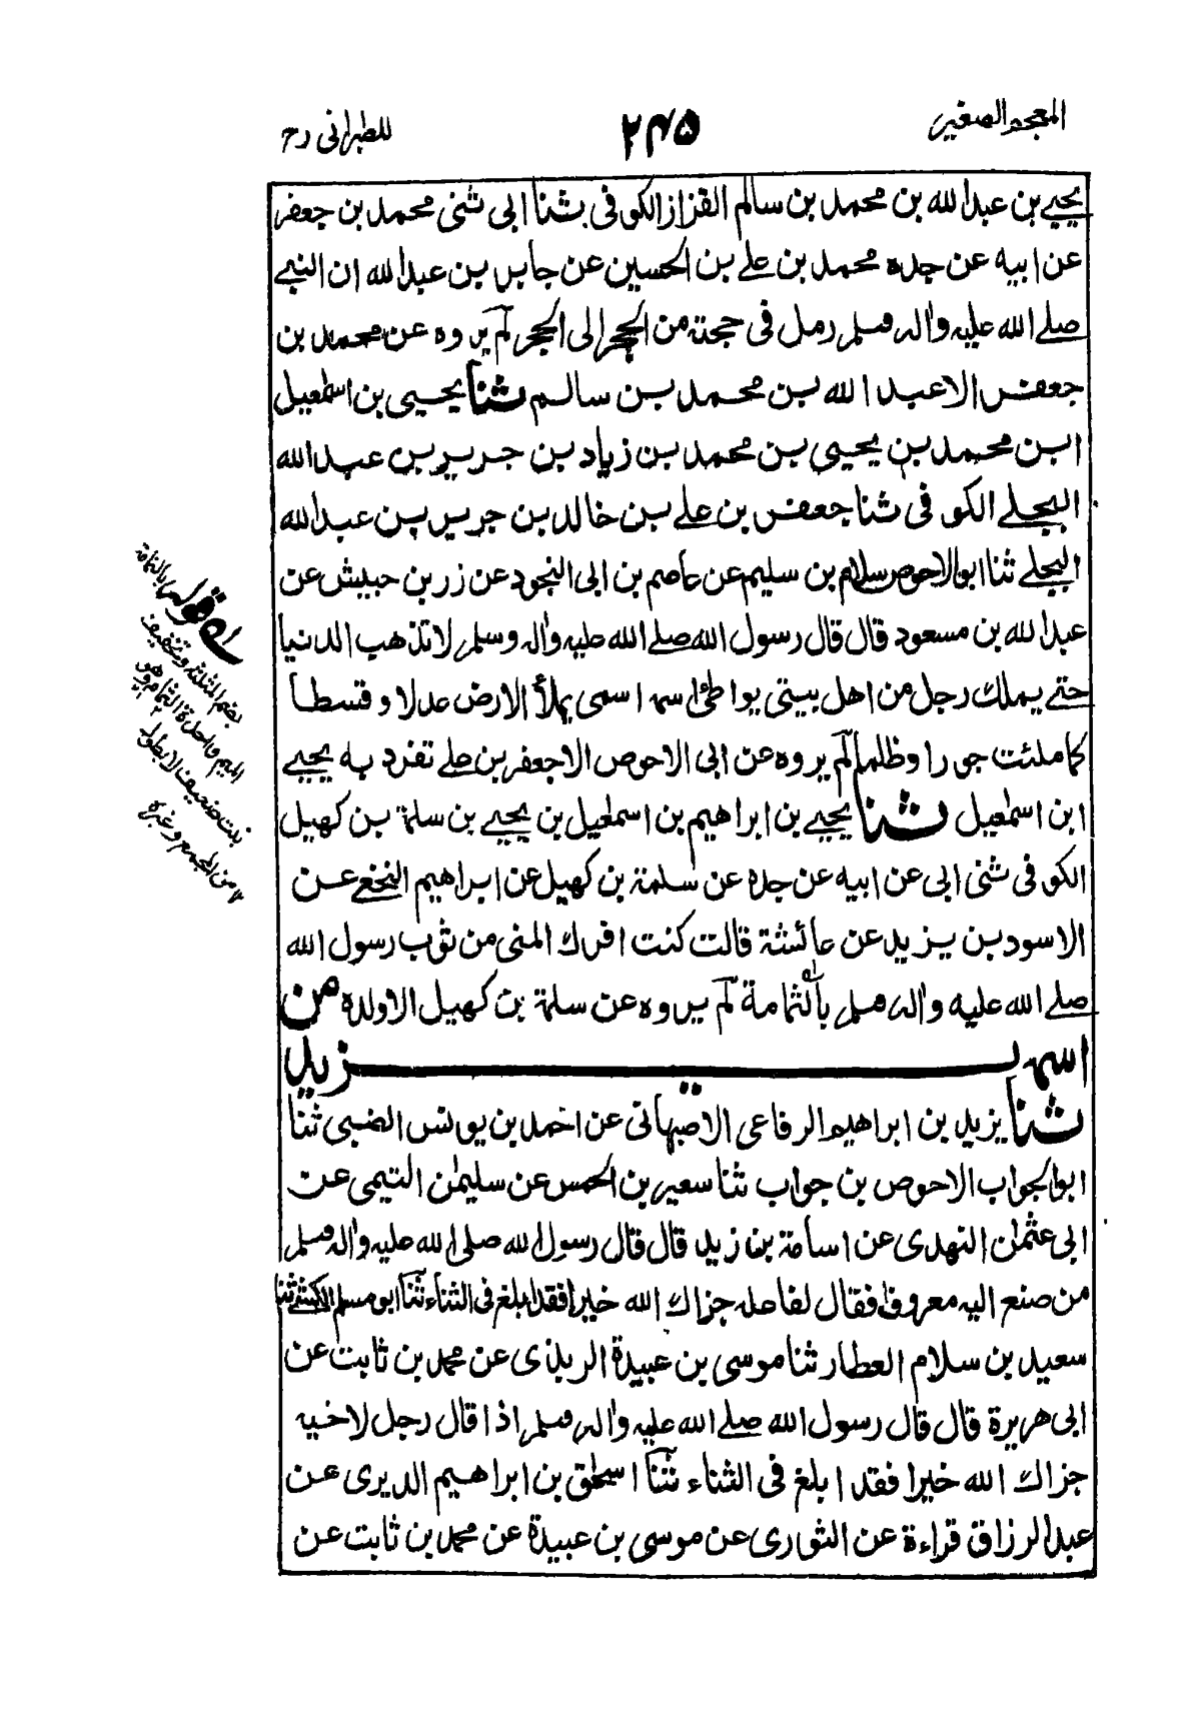 المعجم الصغير
۲۴۵
للطبرانی رح
يحيے بن عبد الله بن محمد بن سالم القزاز الكوفی ثنا ابی ثنی محمد بن جعفر
عن ابيه عن جده محمد بن علے بن الحسين عن جابر بن عبد الله ان النبے
صلے الله عليه واله وسلم رمل فی حجته من الحجر الی الحجر لم يروه عن محمد بن
جعفر الا عبد الله بن محمد بن سالم ثنا يحيی بن اسمٰعيل
ابن محمد بن يحيی بن محمد بن زياد بن جرير بن عبد الله
البجلے الكوفی ثنا جعفر بن علے بن خالد بن جرير بن عبد الله
البجلے ثنا ابو الاحوص سلام بن سليم عن عاصم بن ابی النجود عن زر بن حبيش عن
عبد الله بن مسعود قال قال رسول الله صلے الله عليه واله وسلم لا تذهب الدنيا
حتے يملك رجل من اهل بيتی يواطئ اسمه اسمی يملأ الارض عدلا وقسطا
كما ملئت جورا وظلما لم يروه عن ابی الاحوص الا جعفر بن علے تفرد به يحيے
ابن اسمٰعيل ثنا يحيے بن ابراهيم بن اسمٰعيل بن يحيے بن سلمة بن كهيل
الكوفی ثنی ابی عن ابيه عن جده عن سلمة بن كهيل عن ابراهيم النخعے عن
الاسود بن يزيد عن عائشة قالت كنت افرك المنی من ثوب رسول الله
صلے الله عليه واله وسلم بالثمامة لم يروه عن سلمة بن كهيل الا ولده من
اسمه يزيد
ثنا يزيد بن ابراهيم الرفاعی الاصبهانی عن احمد بن يونس الضبی ثنا
ابو الجواب الاحوص بن جواب ثنا سعير بن الخمس عن سليمٰن التيمی عن
ابی عثمٰن النهدی عن اسامة بن زيد قال قال رسول الله صلی الله عليه واله وسلم
من صنع اليه معروف فقال لفاعله جزاك الله خيرا فقد ابلغ فی الثناء ثنا ابو مسلم الكشے ثنا
سعيد بن سلام العطار ثنا موسی بن عبيدة الربذی عن محمد بن ثابت عن
ابی هريرة قال قال رسول الله صلے الله عليه واله وسلم اذا قال رجل لاخيه
جزاك الله خيرا فقد ابلغ فی الثناء ثنا اسحٰق بن ابراهيم الدبری عن
عبد الرزاق قراءة عن الثوری عن موسی بن عبيدة عن محمد بن ثابت عن
له قوله بالثمامة
بضم المثلثة وتخفيف
الميم واحدة الثمام وهو
نبت ضعيف لا يطول
۱۲ من المجمع وغيره